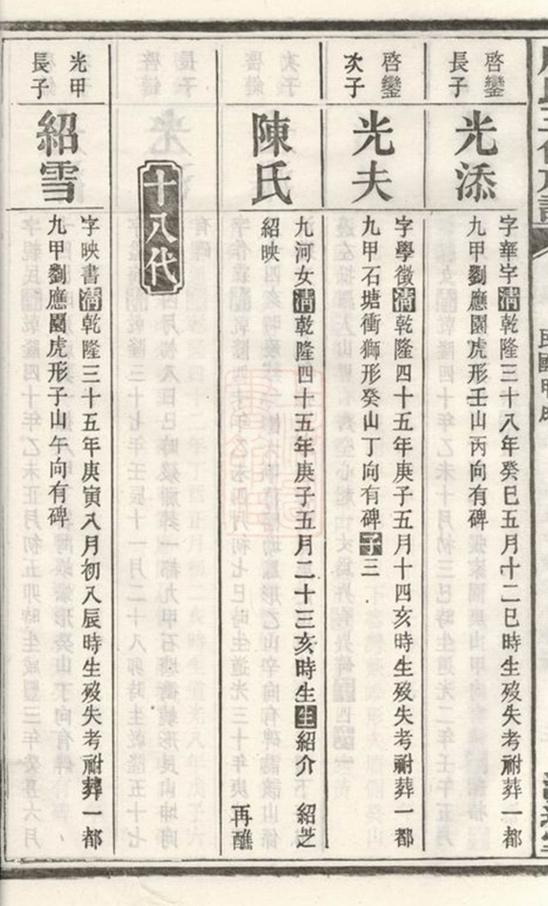 啓鑾
長子
光添
字華字清乾隆三十八年癸巳五月十二巳時生歿失考祔葬一都
九甲劉應園虎形壬山丙向有碑
啓鑾
次子
光夫
字學徵清乾隆四十五年庚子五月十四亥時生歿失考祔葬一都
九甲石塘衝獅形癸山丁向有碑子三
陳氏
九河女清乾隆四十五年庚子五月二十三亥時生生紹介 紹芝
紹映 再醮
十八代
光甲
長子
紹雪
字映書清乾隆三十五年庚寅八月初八辰時生歿失考祔葬一都
九甲劉應園虎形子山午向有碑